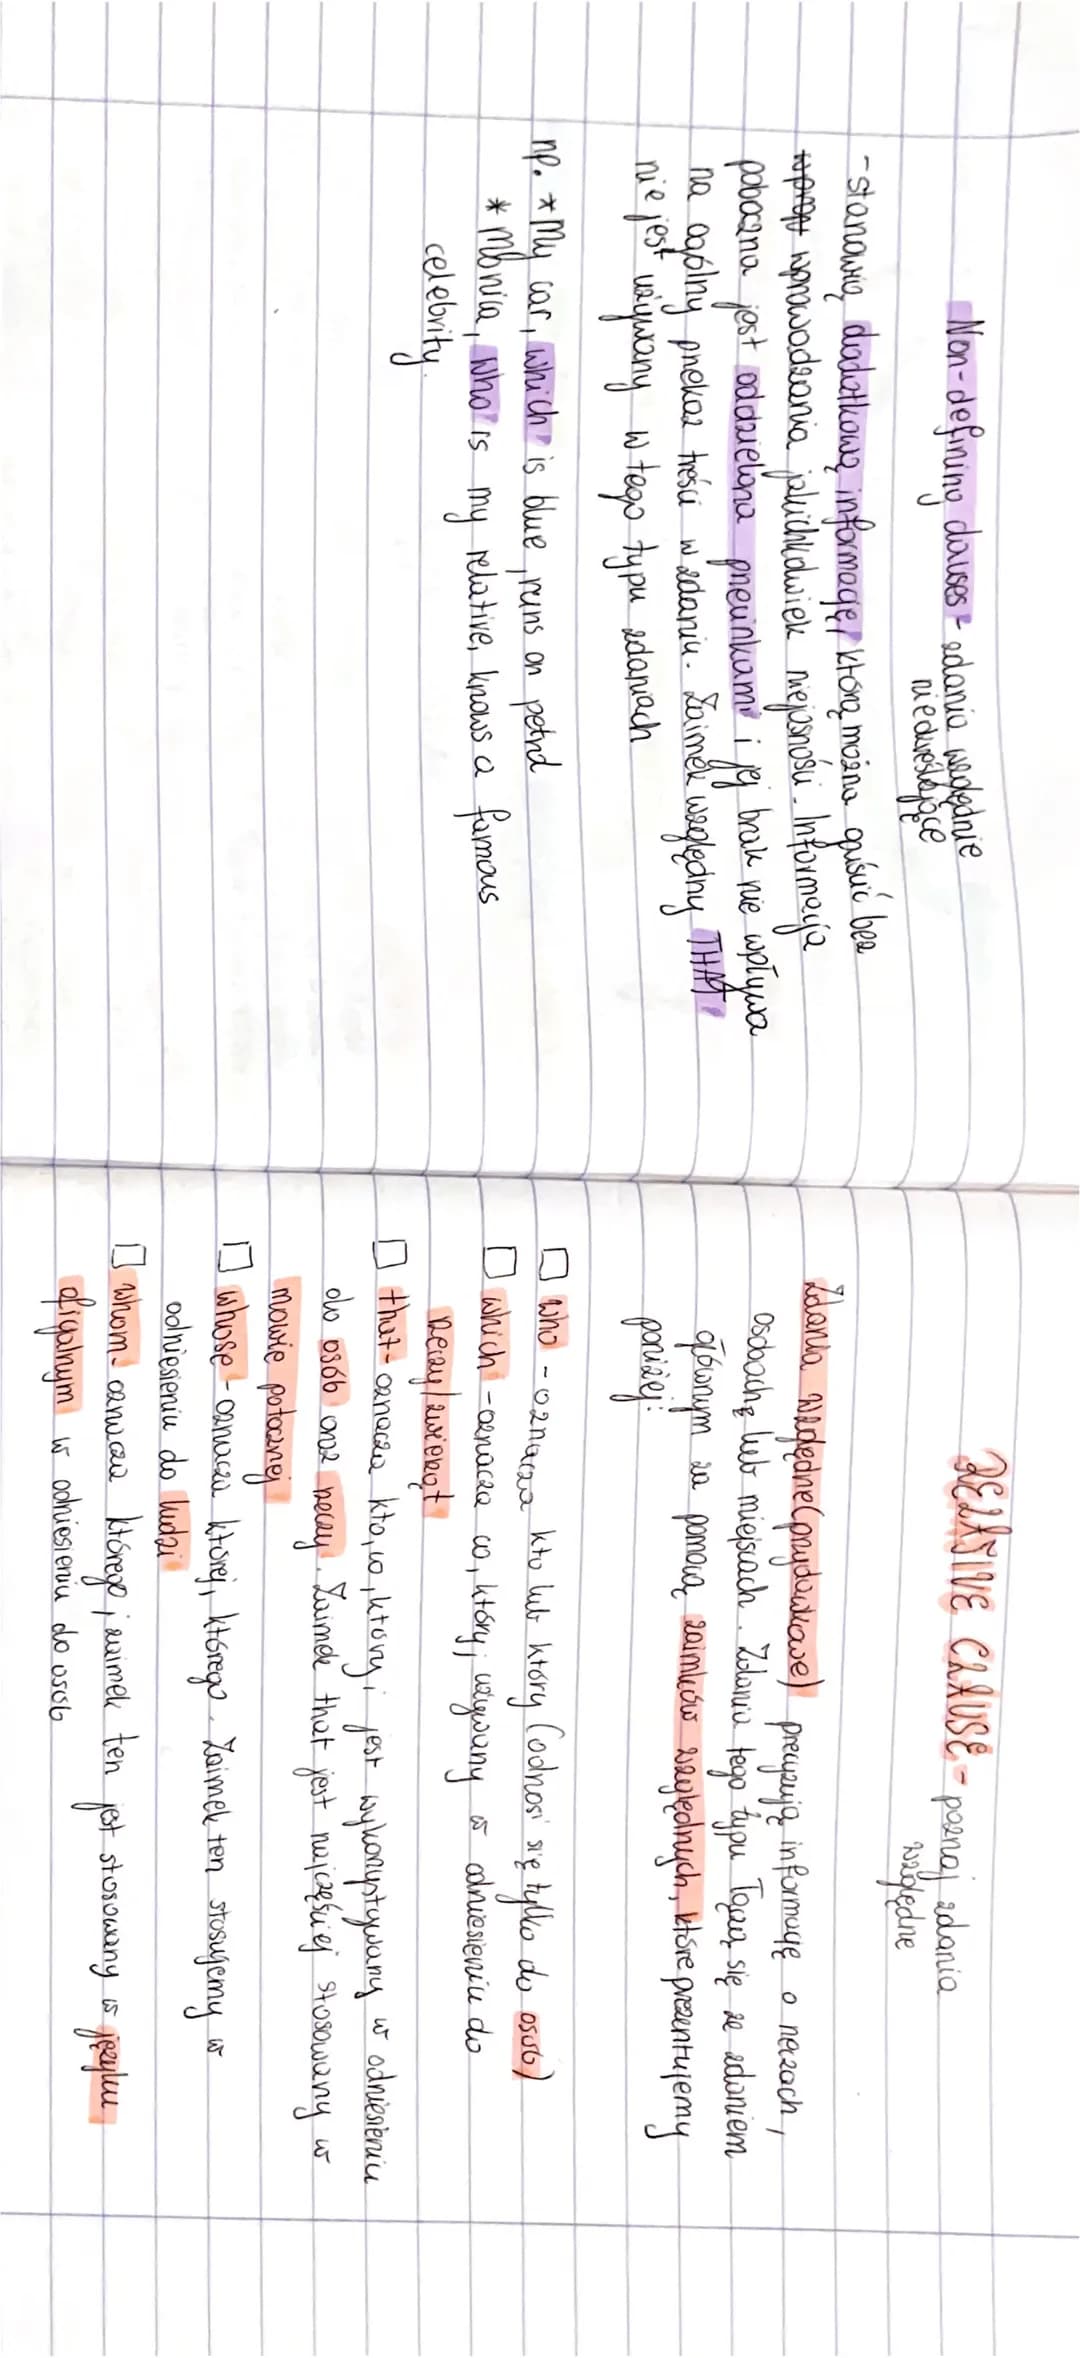 Non-defining clauses - zdania względnie
niedokreślające
- stanowią dodatkową informację, którą można opuścić bez
wprowadzania jakichkolwiek niejasności. Informacja
poboczna jest oddzielona przecinkami i jej brak nie wpływa
na ogólny przekaz treści w zdaniu. Zaimek względny THAT
nie jest używany w tego typu zdaniach
np. * My car, which is blue, runs on petrol
* Monica, who is my relative, knows a famous
celebrity.
RELATIVE CLAUSE - poznaj zdania
względne
Zdania względne (przydawkowe) precyzują informację o rzeczach,
osobach lub miejscach. Zdania tego typu łączą się ze zdaniem
głównym za pomocą zaimków względnych, które prezentujemy
poniżej:
□ who - oznacza kto lub który (odnosi się tylko do osób)
□ which - oznacza co, który; używany w odniesieniu do
rzeczy/zwierząt
□ that - oznacza kto, co, który; jest wykorzystywany w odniesieniu
do osób oraz rzeczy. Zaimek that jest najczęściej stosowany w
mowie potocznej
□ whose - oznacza której, którego. Zaimek ten stosujemy w
odniesieniu do ludzi
□ whom - oznacza którego; zaimek ten jest stosowany w języku
oficjalnym w odniesieniu do osób